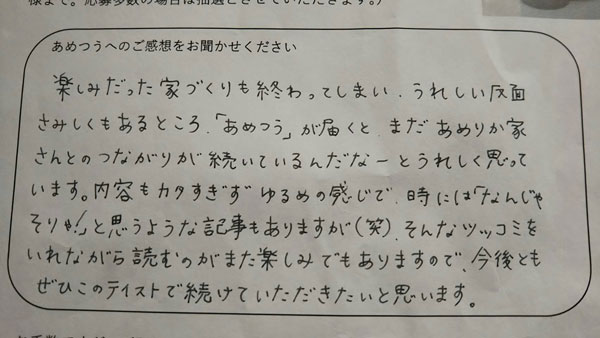 様まで。応募多数の場合は抽選とさせていただきます。）
あめつうへのご感想をお聞かせください
楽しみだった家づくりも終わってしまい、うれしい反面
さみしくもあるところ、「あめつう」が届くと、まだあめりか家
さんとのつながりが続いているんだなーとうれしく思って
います。内容もカタすぎずゆるめの感じで、時には「なんじゃ
そりゃ!」と思うような記事もありますが(笑)、そんなツッコミを
いれながら読むのがまた楽しみでもありますので、今後とも
ぜひこのテイストで続けていただきたいと思います。